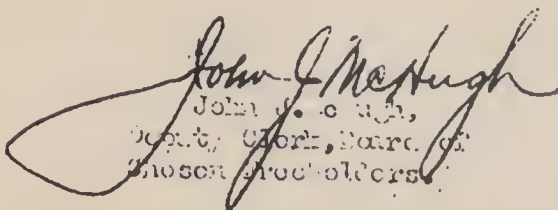 John J McHugh
John J. McHugh,
Deputy Clerk, Board of
Chosen Freeholders.